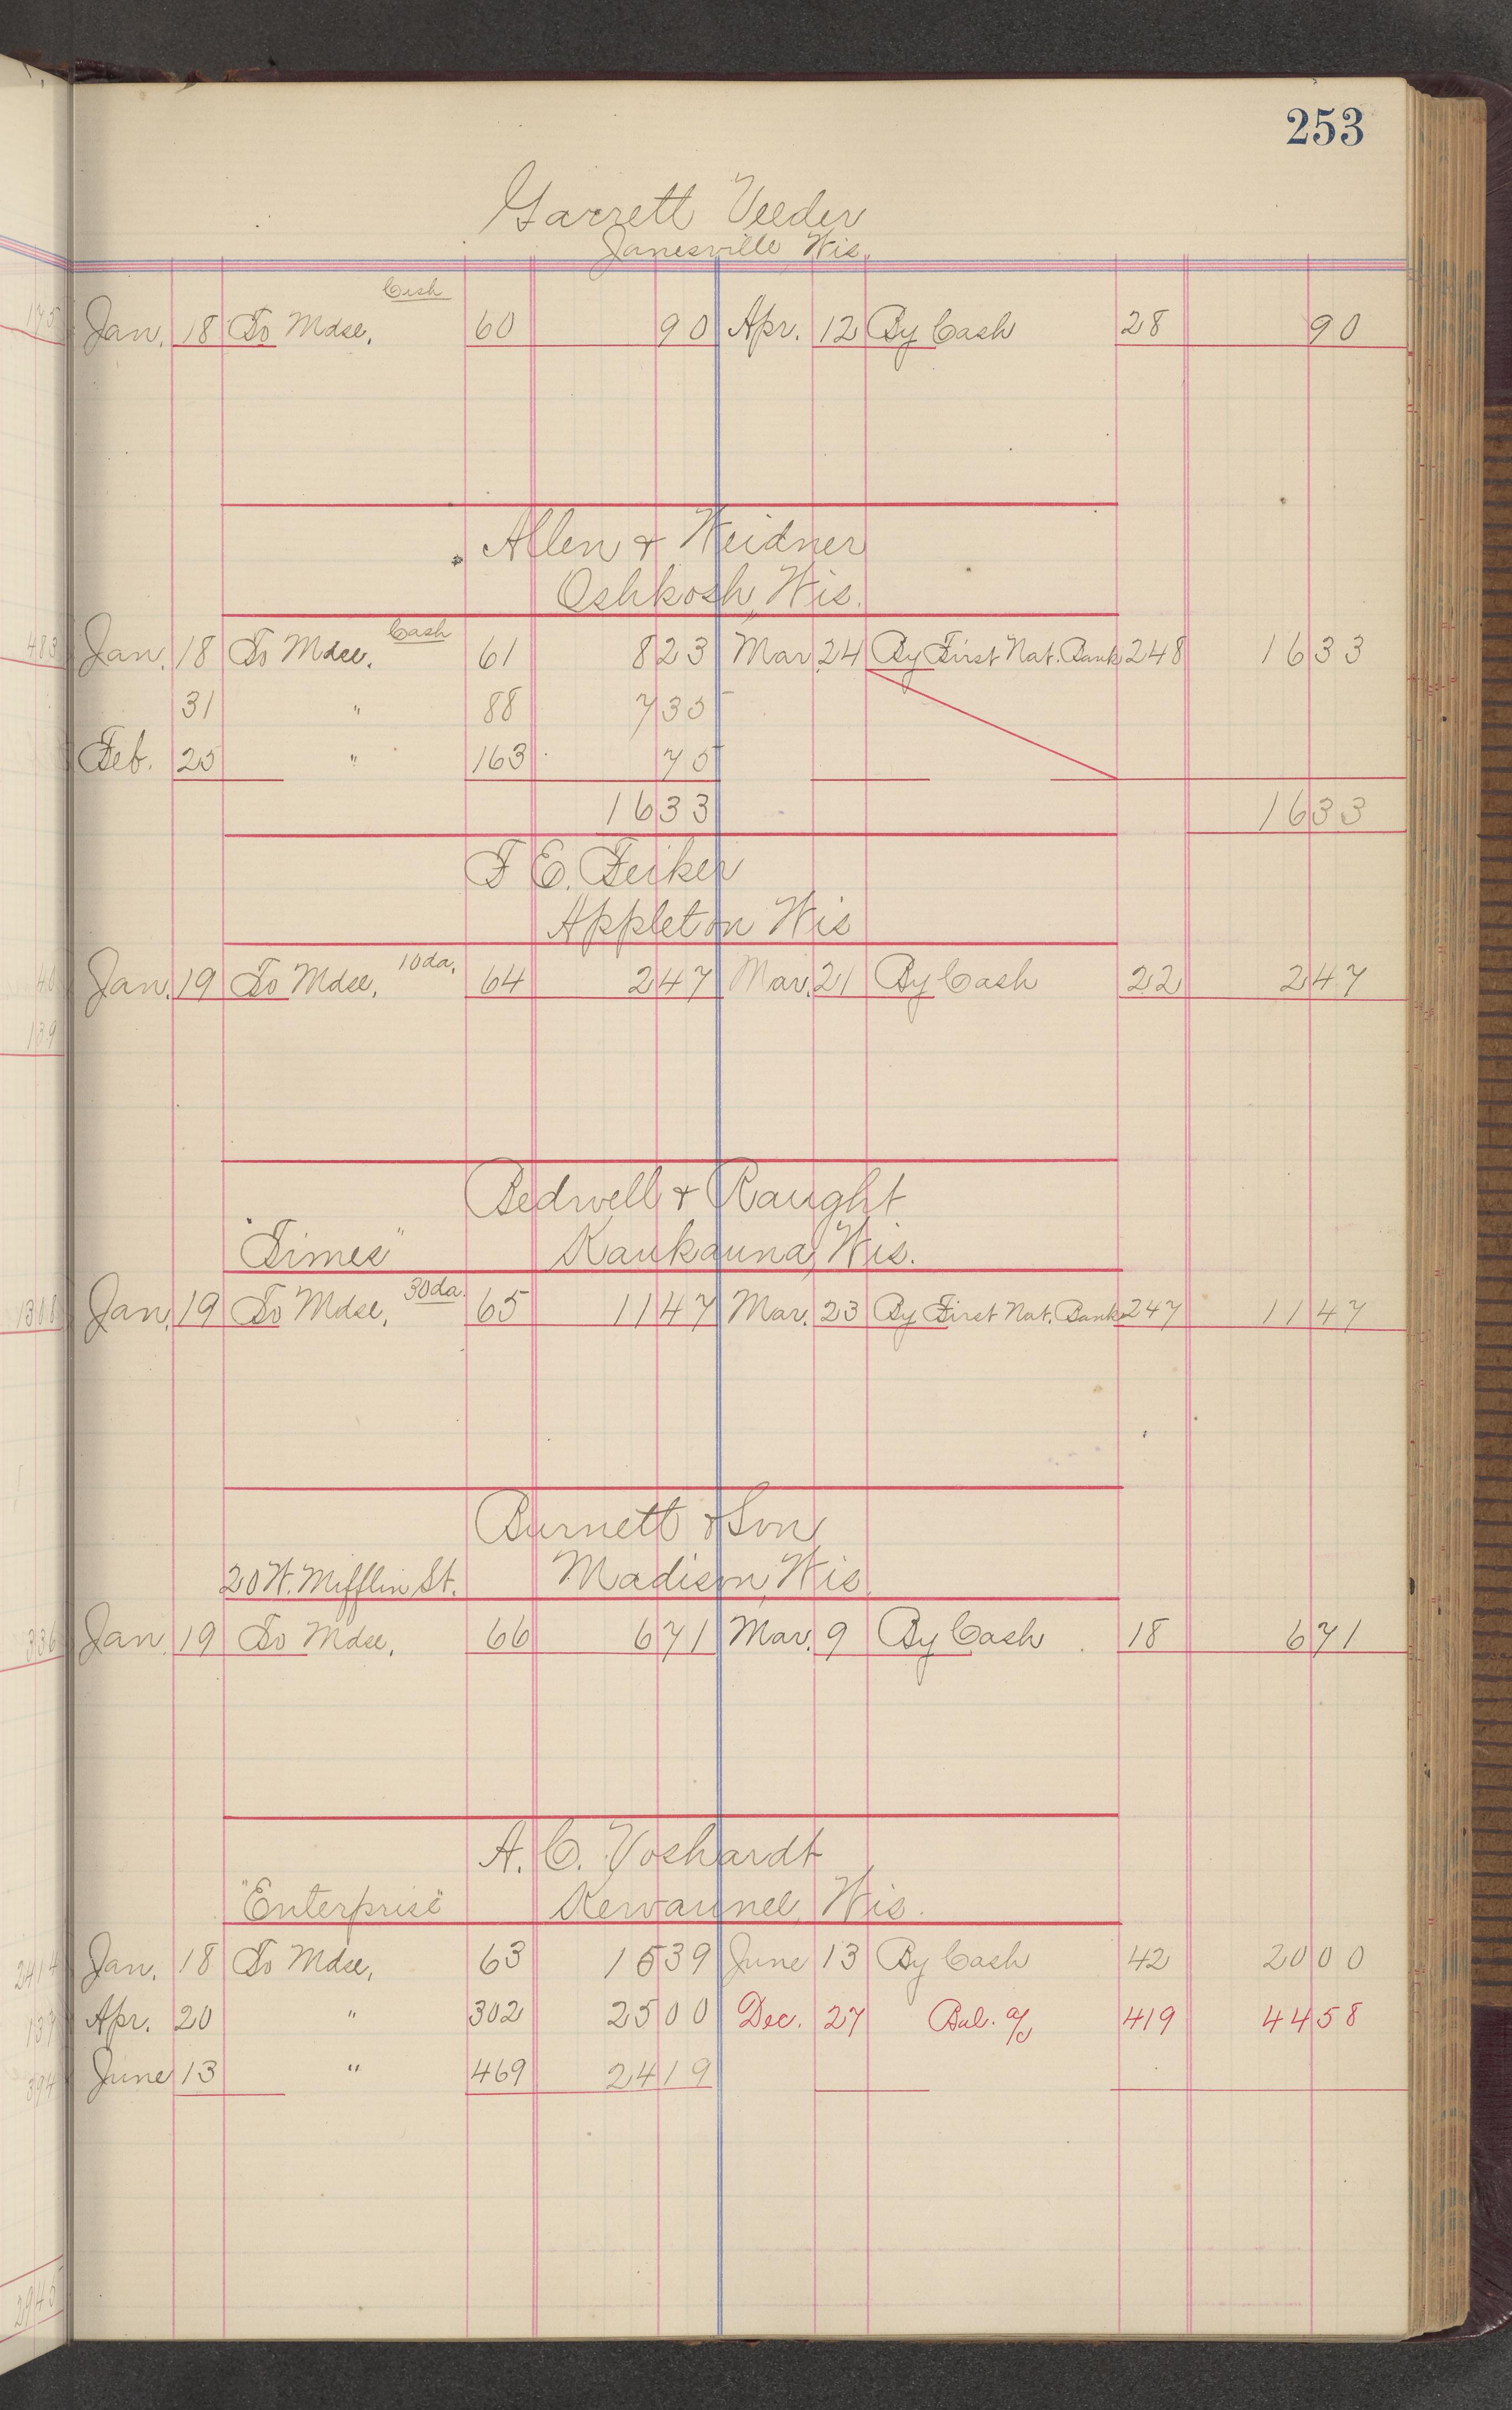 253
Garrett Veeder
Janesville Wis.
Cash
Jan. 18 To Mdse, 60 90 Apr. 12 By Cash 28 90
Allen & Weidner
Oshkosh, Wis.
Cash
Jan. 18 To Mdse. 61 823 Mar 24 By First Nat. Bank 248 1633
31 " 88 735
Feb. 25 " 163 75
1633 1633
F E. Feiker
Appleton Wis
10da.
Jan. 19 To Mdse, 64 247 Mar. 21 By Cash 22 247
Bedwell & Raught
"Times" Kaukauna, Wis.
30da.
Jan. 19 To Mdse, 65 1147 Mar. 23 By First Nat. Bank 247 1147
Burnett & Son
20 W. Mifflin St. Madison, Wis.
Jan. 19 To Mdse, 66 671 Mar. 9 By Cash 18 671
A. C. Voshardt
"Enterprise" Kewaunee, Wis.
Jan. 18 To Mdse, 63 1539 June 13 By Cash 42 2000
Apr. 20 " 302 2500 Dec. 27 Bal. a/c 419 4458
June 13 " 469 2419